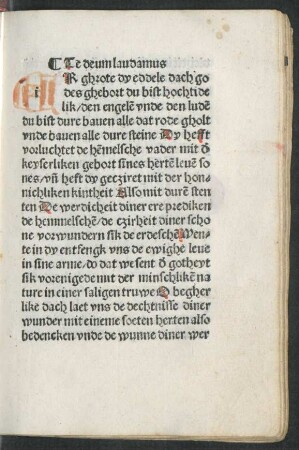 ⸿ Te deum laudamus
Ei
Rghrote dy eddele dach go
des ghebort du bist hochtide
lik/den engelē vnde den ludē
du bist dure bauen alle dat rode gholt
vnde bauen alle dure steine Dy hefft
vorluchtet de hēmelsche vader mit ď
keyserliken gebort sines hertē leuē so
nes/vñ hefft dy gecziret mit der hon
nichliken kintheit Also mit durē sten
ten De werdicheit diner ere prediken
de hemmelschē/ de czirheit diner scho
ne vorwundern sik de erdeschē Wen
te in dy entfengk vns de ewighe leue
in sine arme/do dat wesent ď gotheyt
sik vorenigede mit der minschlikē na
ture in einer saligen truwe O begher
like dach laet vns de dechtnisse diner
wunder mit eineme soeten herten also
bedencken vnde de wunne diner wer